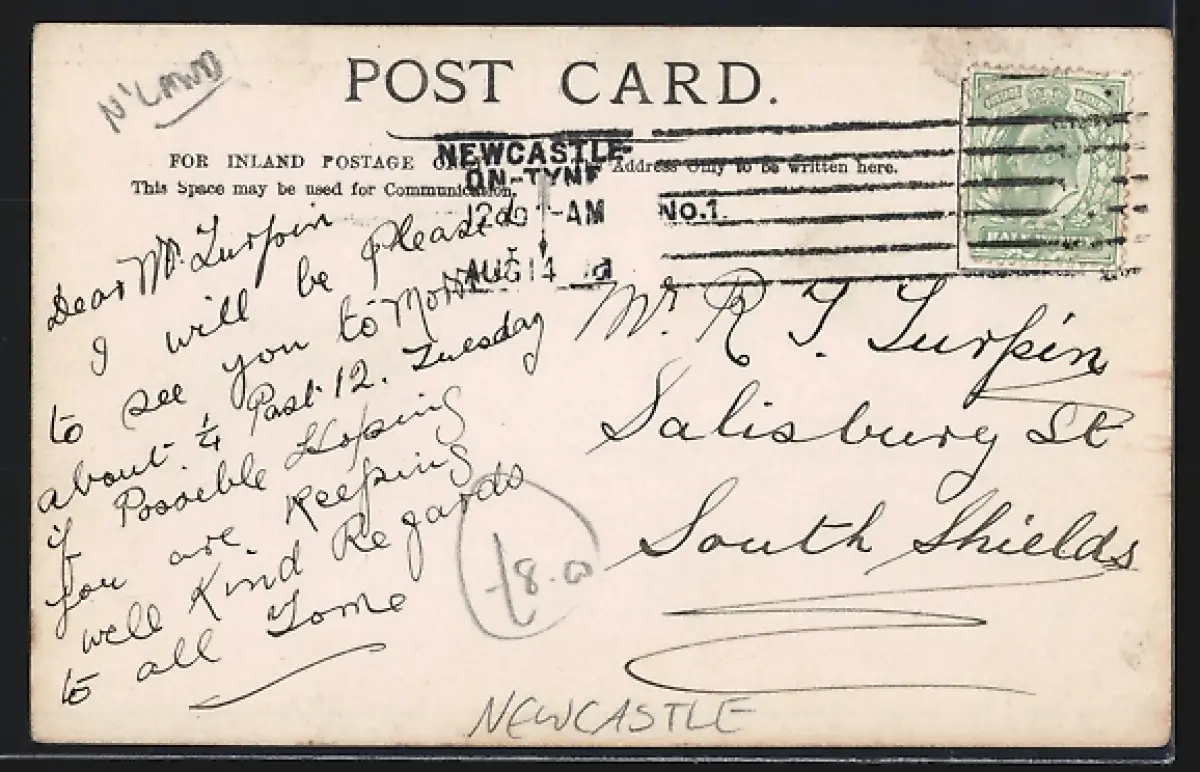 N'LAND
POST CARD.
FOR INLAND POSTAGE
Address Only to be written here.
This Space may be used for Communication.
NEWCASTLE-
ON-TYNE
AM
NO.1.
AUG 14
HALF
Dear Mr. Turpin
I will be pleased
to see you to
about 1/4 Past 12. Tuesday
if Possible Hoping
you are Keeping
well Kind Regards
to all Tome
Mr. R T. Turpin
Salisbury St
South Shields
£8.00
NEWCASTLE